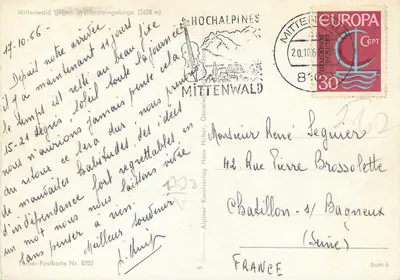 Mittenwald gegen Wettersteingebirge (2628 m)
17.10.66
Depuis notre arrivée
il y a maintenant 11 jours
le temps est resté au beau fixe
15-21 degrés, soleil toute la journée
nous n'aurions jamais pensé cela,
au retour ce sera dur, nous prenons
de mauvaises habitudes, des idées
d'indépendance fort regrettables, en
un mot nous nous laissons vivre
sans penser à rien.
Meilleur souvenir
HOCHALPINES
MITTENWALD
MITTENWALD
20.10.66
EUROPA
CEPT
DEUTSCHE BUNDESPOST
30
Monsieur René Leguier
42 Rue Pierre Brossolette
Chatillon - s/ Bagneux
(Seine)
FRANCE
Alpiner Kunstverlag Hans Huber, Garmisch
Huber-Postkarte Nr. 8702